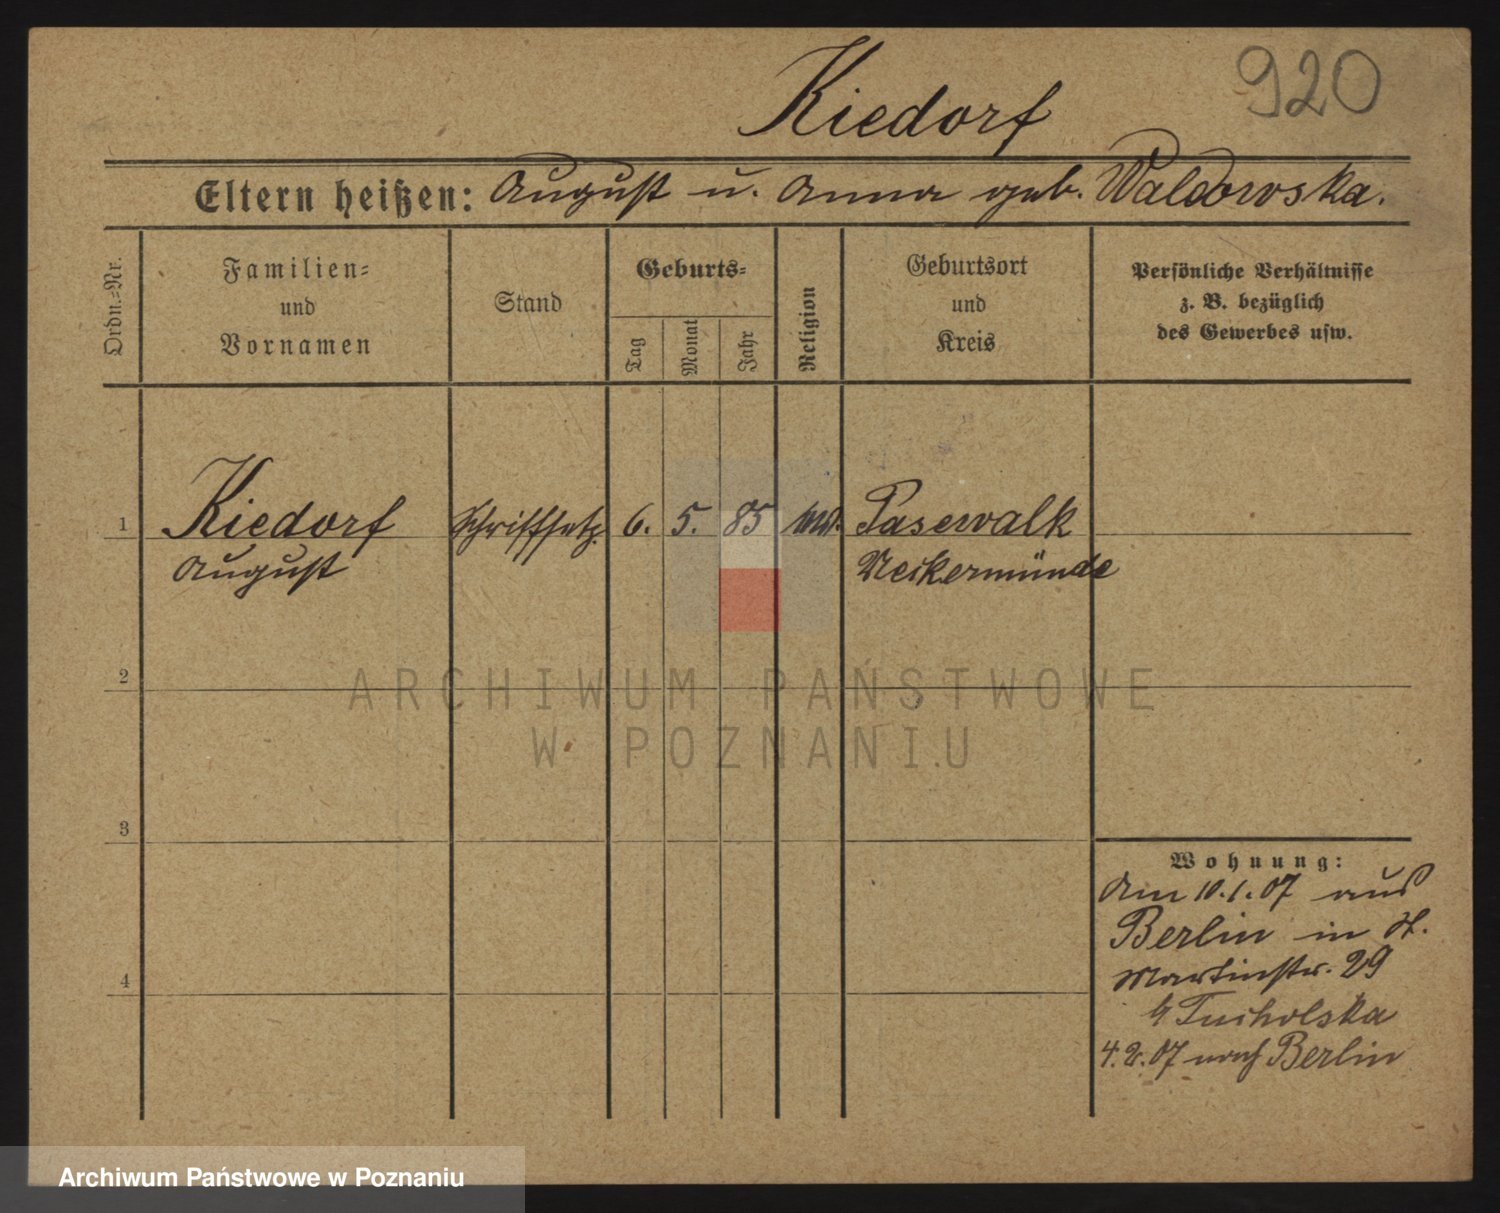 920
Kiedorf
Eltern heißen: August u. Anna geb. Waldowska.
Ordn.-Nr.
Familien-
und
Vornamen
Stand
Geburts-
Tag
Monat
Jahr
Religion
Geburtsort
und
Kreis
Persönliche Verhältnisse
z. B. bezüglich
des Gewerbes usw.
1
Kiedorf Schriftsetz. 6. 5. 85 Pasewalk
August Ueckermünde
2
3
4
Wohnung:
Am 10.1.07 aus
Berlin in St.
Martinstr. 29
Tucholska
4.2.07 nach Berlin
ARCHIWUM PAŃSTWOWE
W POZNANIU
Archiwum Państwowe w Poznaniu